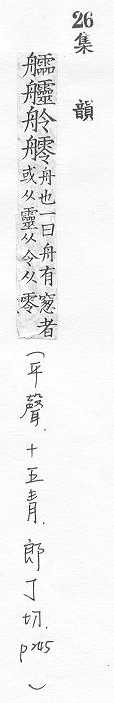 26集韻
舲
舟也一曰舟有窻者
或从靈从令从零
(平聲.十五青.郎丁切.p245)